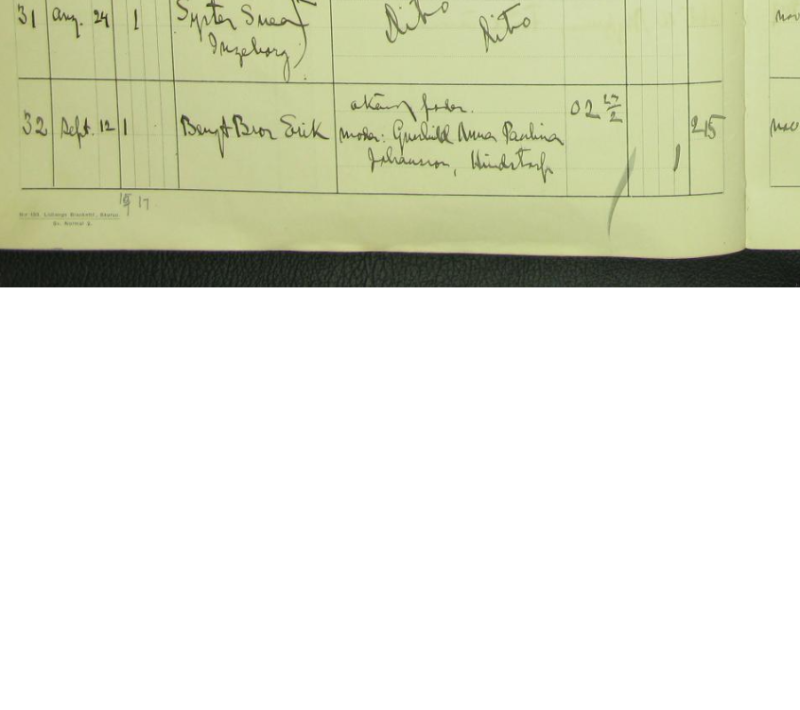 31 Aug. 24 1 Syster Svea Ditto Ditto
Ingeborg
okänd fader.
32 Sept. 12 1 Bengt Bror Erik moder: Gunhild Anna Paulina 02 27/2 1 215
Johansson, Hindstorp
17